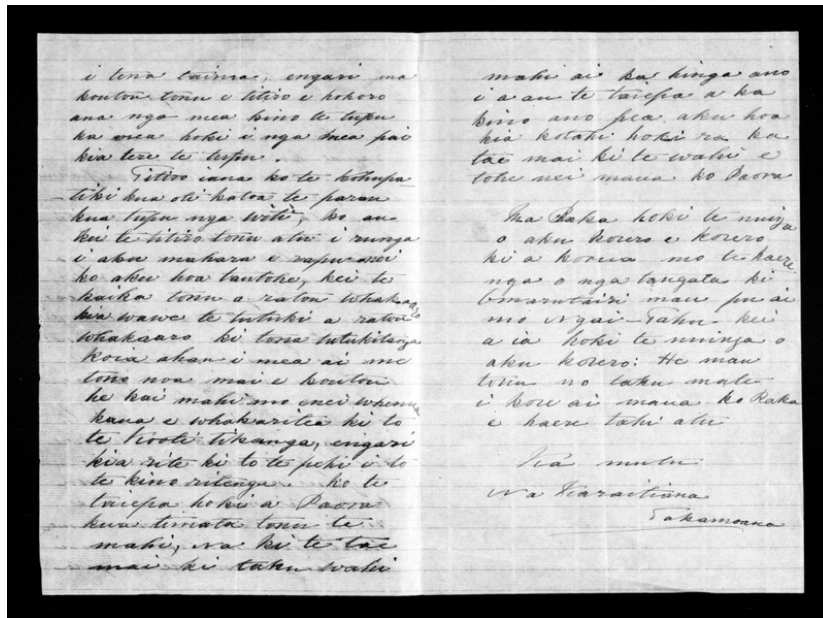 i tona taima, engari ma
koutou tonu e titiro e hohoro
ana nga mea kino te tupu
ka mea hoki i nga mea pai
kia tere te tupu.
Titiro iana ko te
tiki kua oti katoa te parau
kua tupu nga witi, ko au
kei te titiro tonu atu i runga
i aku mahara i rapu noi
ko aku hoa tautohe, kei te
kaika tonu a ratou
kia wawe te tutuki a ratou
whakaaro ki tona tutukitanga
koia ahau i mea ai me
tono noa mai e koutou
he kai mahi mo enei whenua
kaua e whakaritea ki to
te Kooti tikanga, engari
kia rite ki to te pehi i to
te kino ritenga. Ko te
taiepa hoki a Paora
kua timata tonu te
mahi, na ki te tae
mai ki taku wahi
mahi ai ka hinga ano
i a au te taiepa a ka
kino ano pea aku hoa
kia kotahi hoki ra ka
tae mai ki te wahi e
tohe nei maua ko Paora
Ma Raka hoki te nuinga
o aku korero e korero
ki a korua mo te haere
nga o nga tangata ki
mau pu ai
mo Ngai-Tahu kei
a ia hoki te nuinga o
aku korero: He mau
tonu no taku mate
i kore ai maua ko Raka
e haere tahi atu
Ka mutu
Na Karaitiana
Takamoana